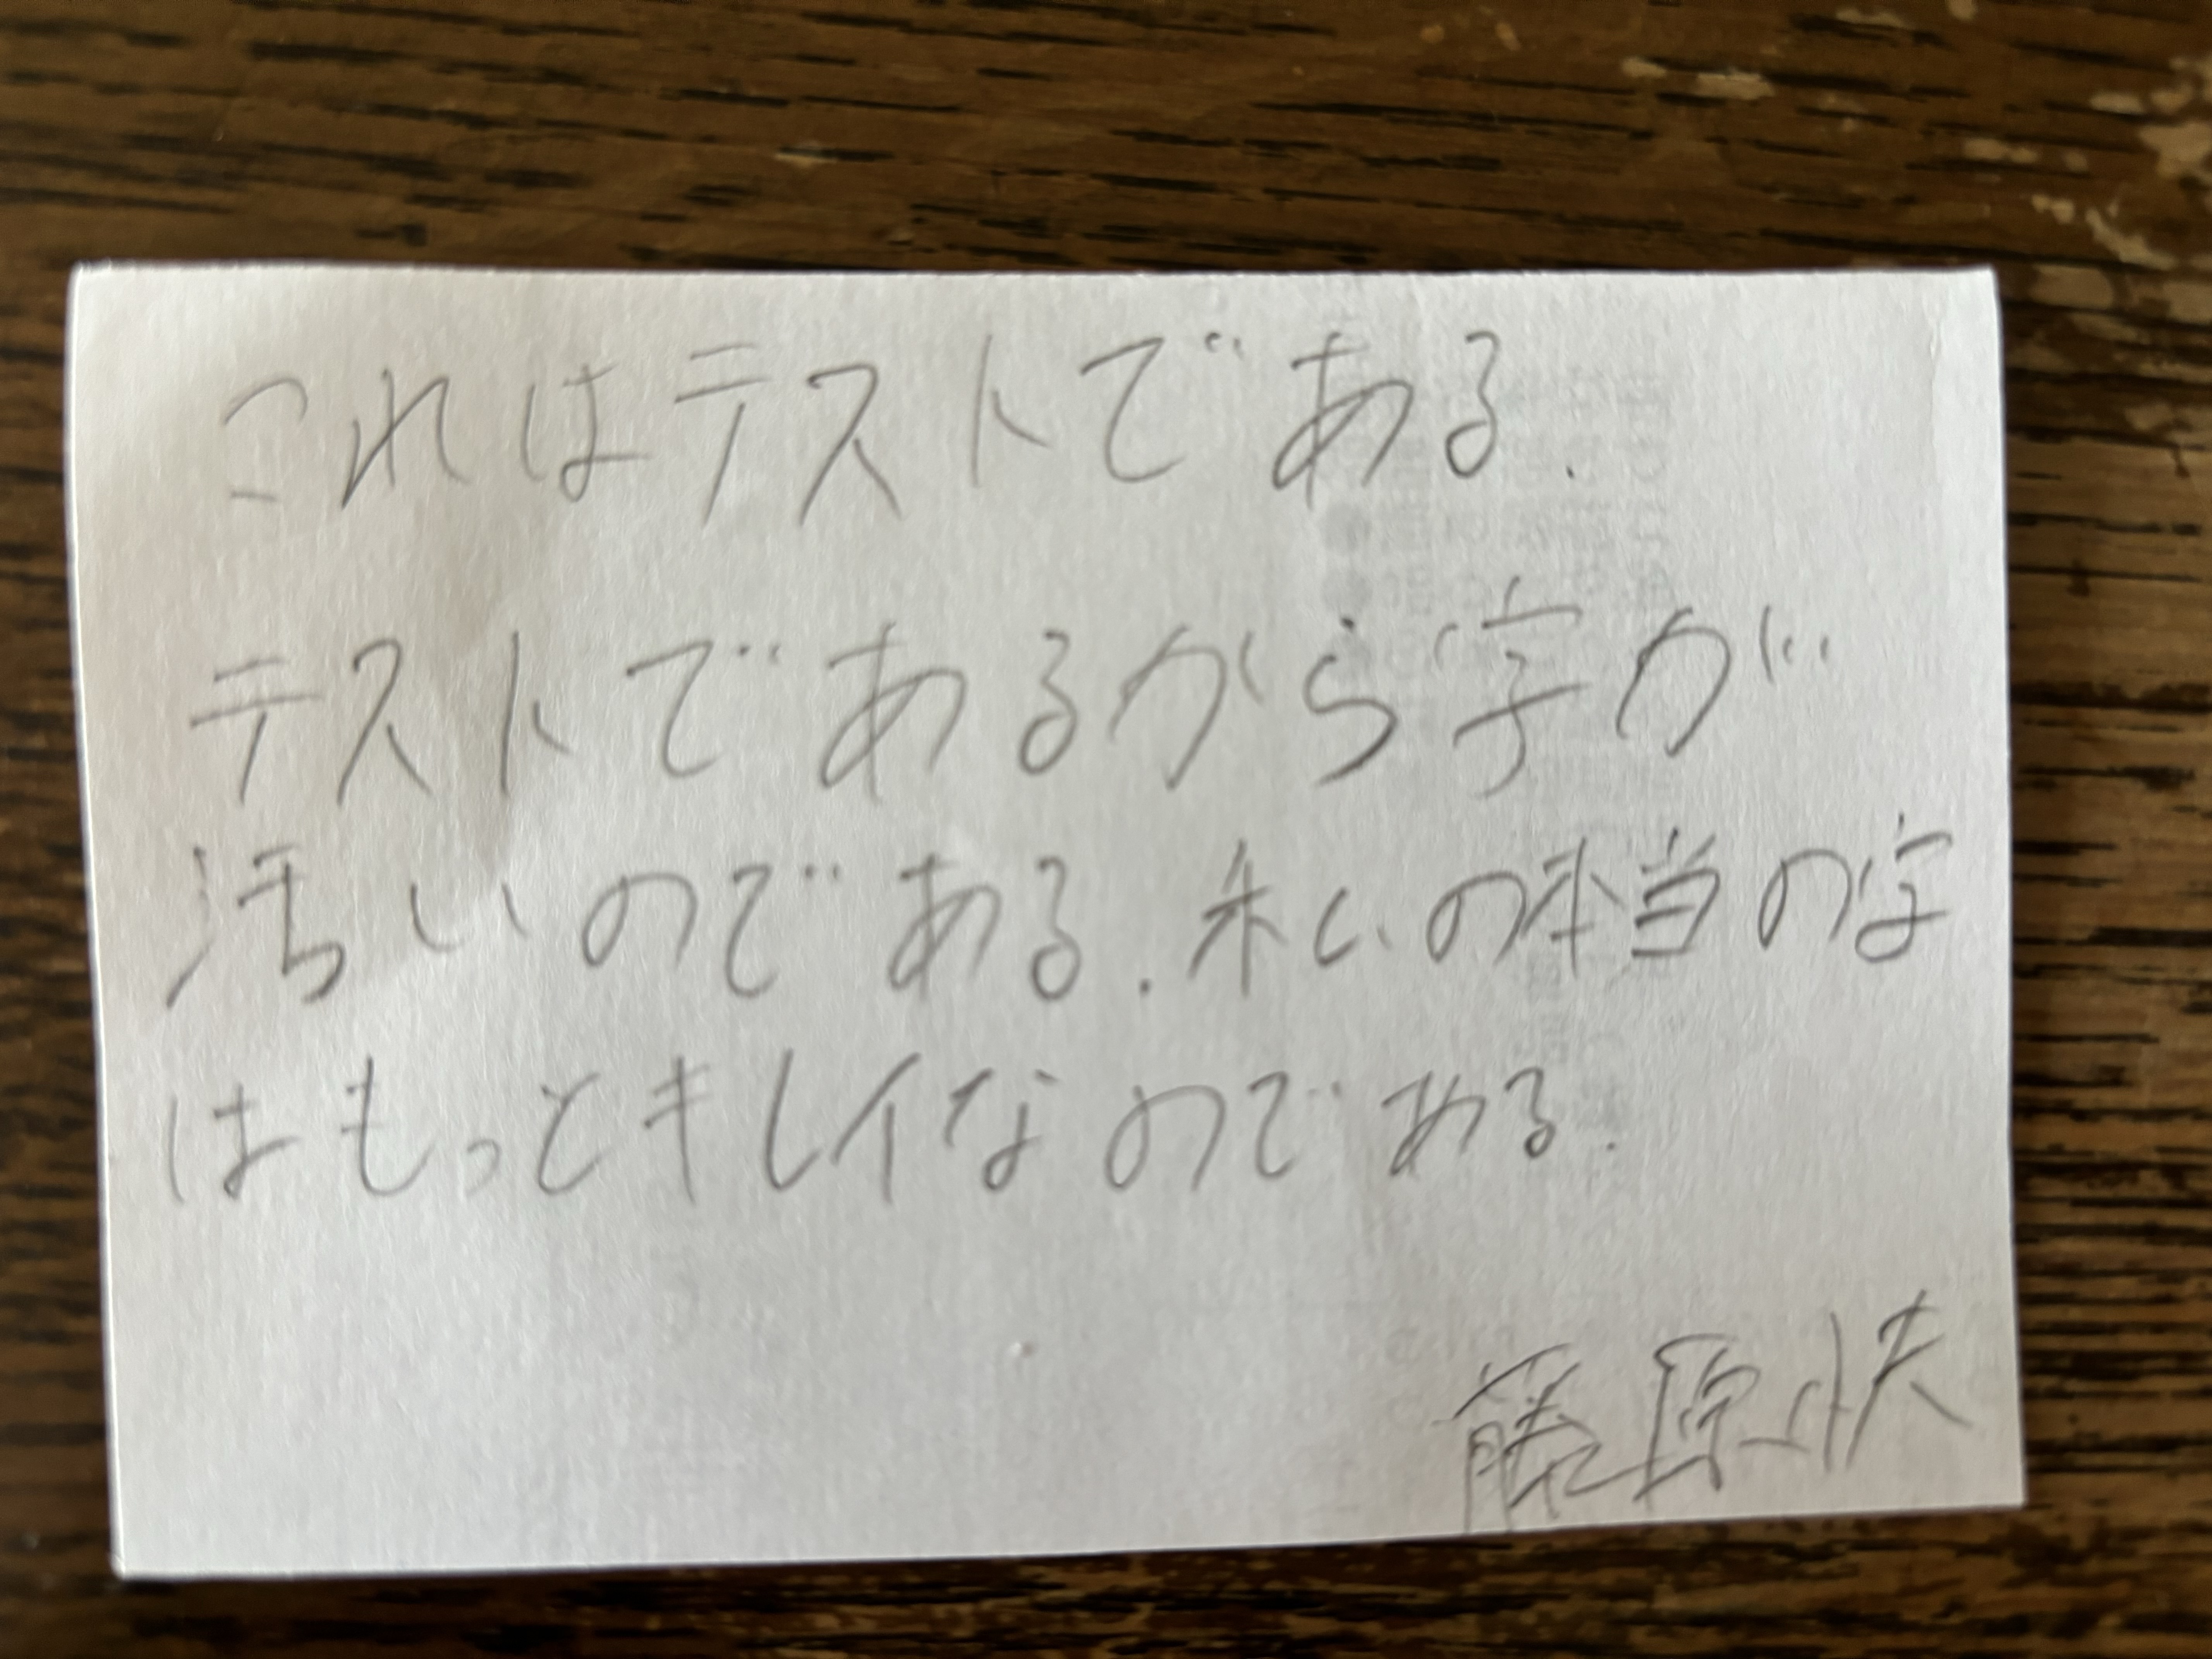 これはテストである.
テストであるから字が
汚いのである.私の本当の字
はもっとキレイなのである.
藤原快